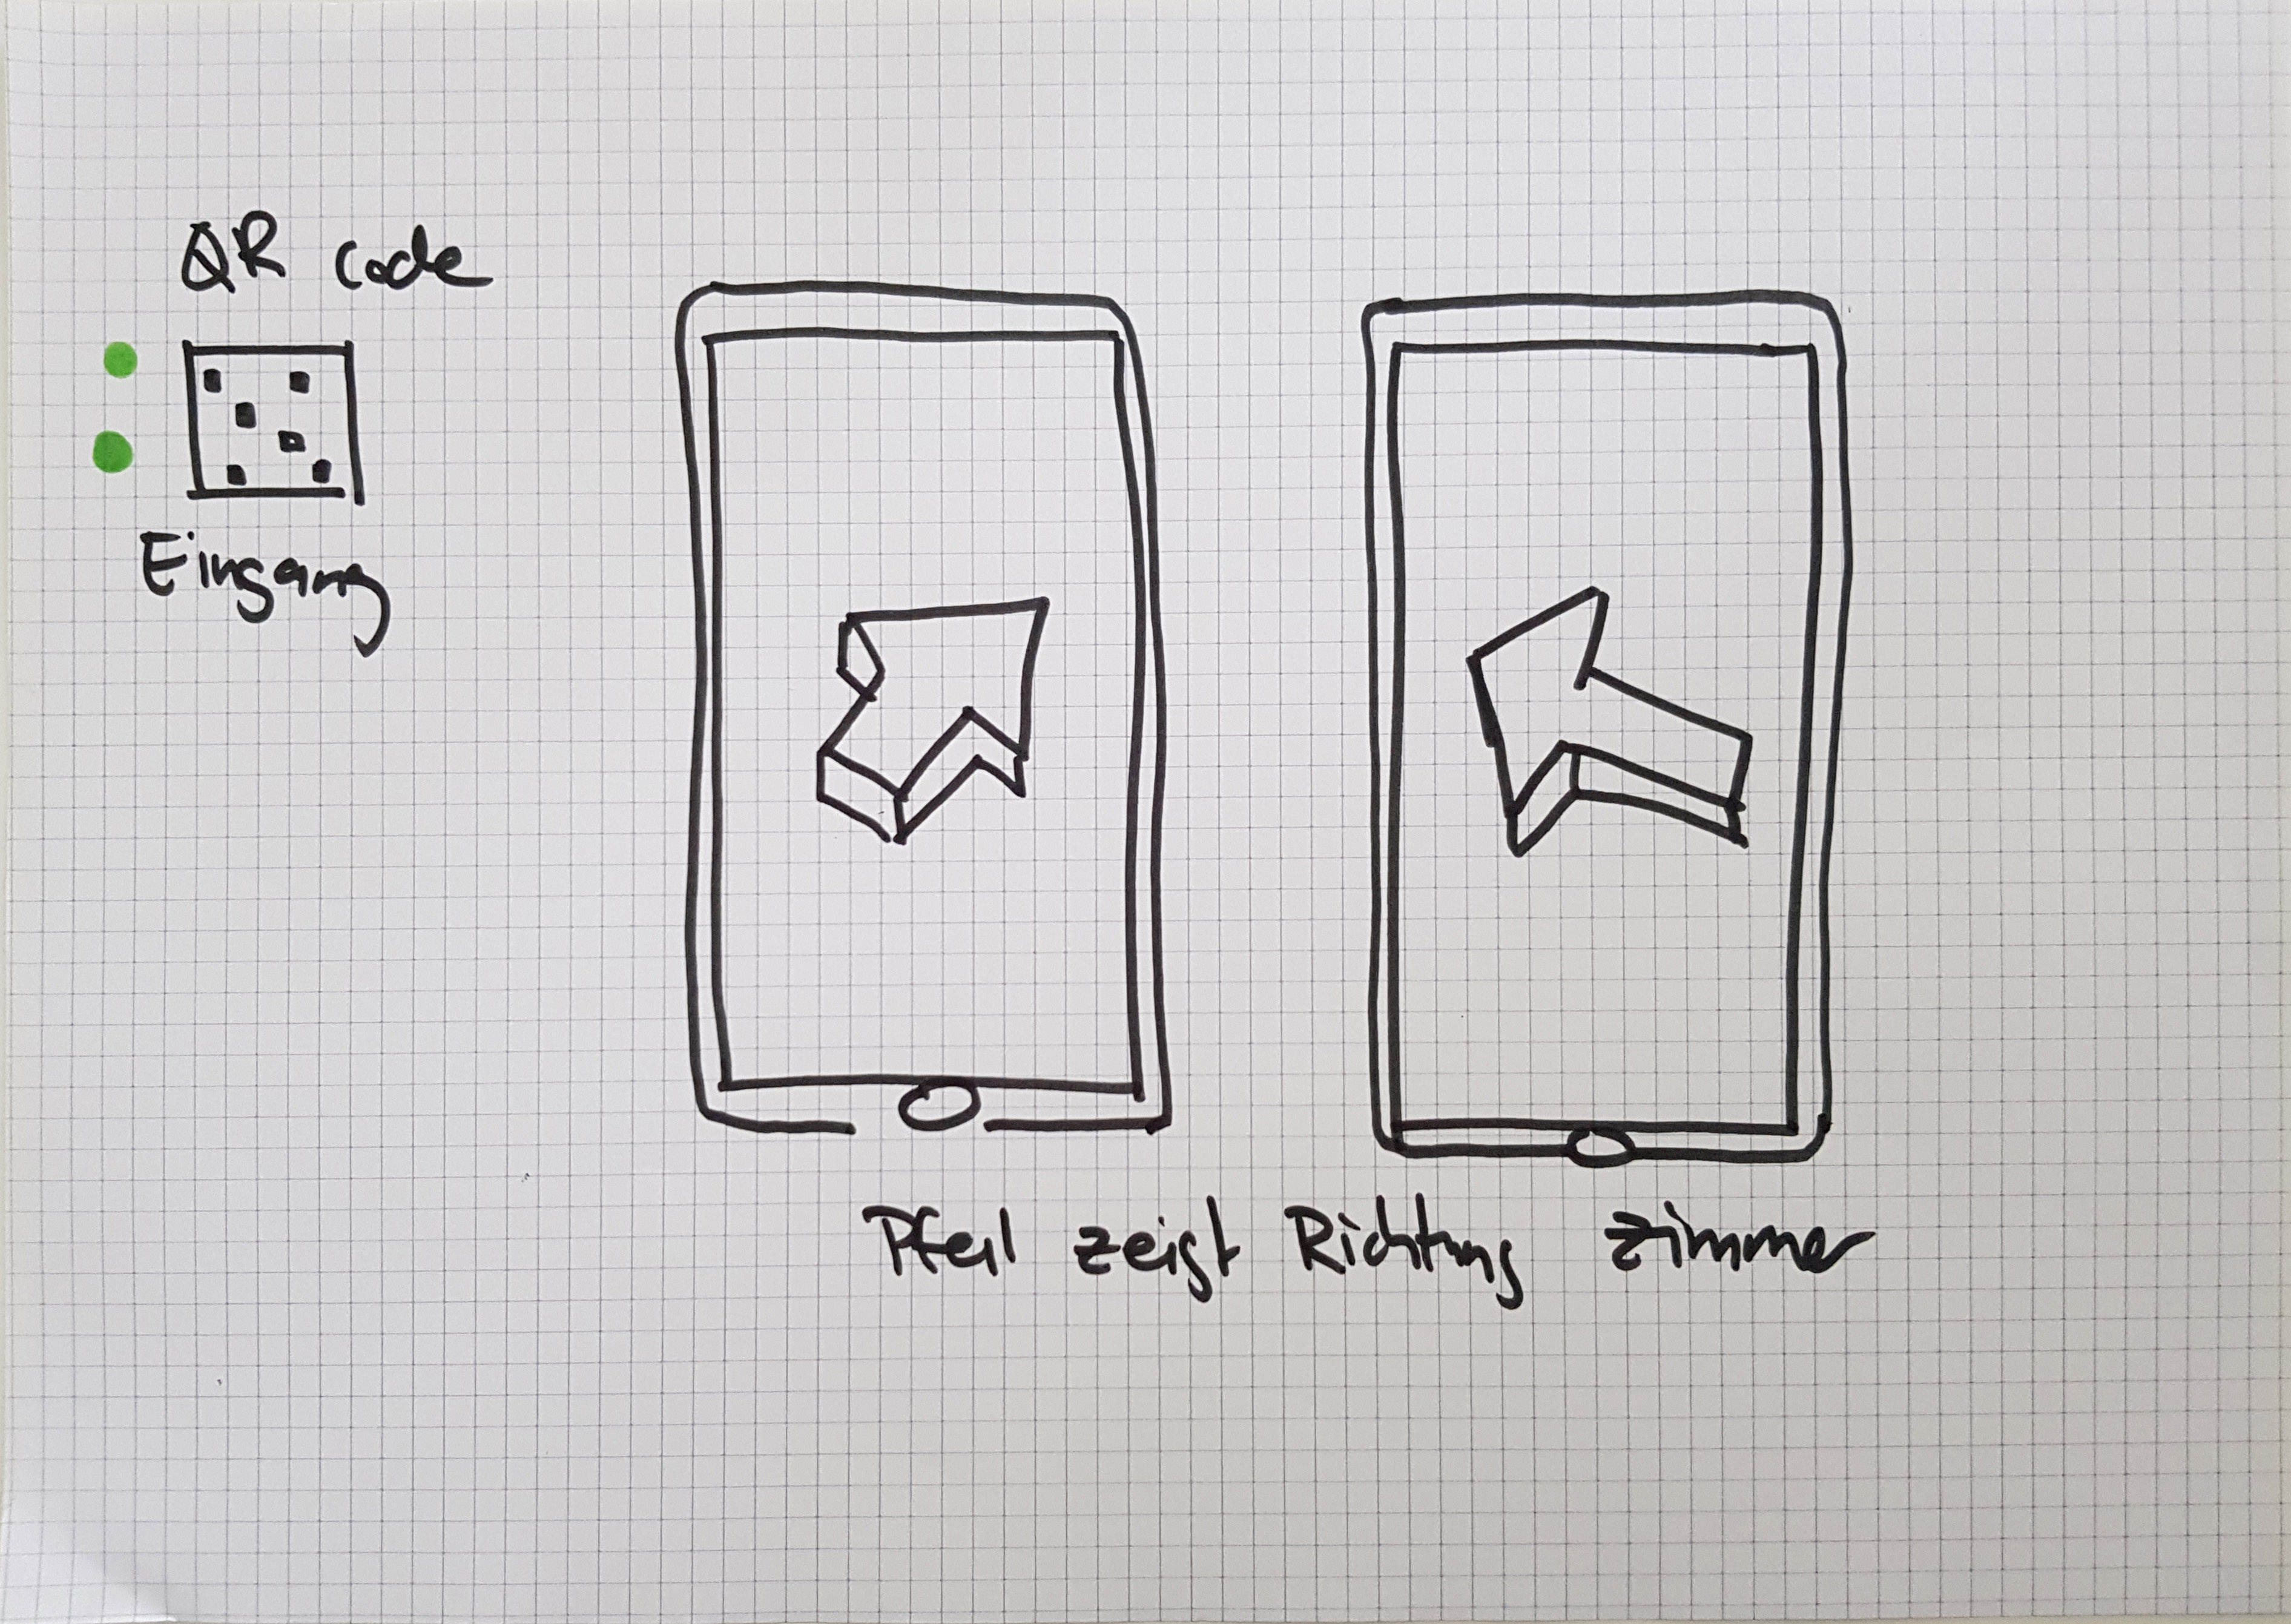 QR code
Eingang
Pfeil zeigt Richtung zimmer